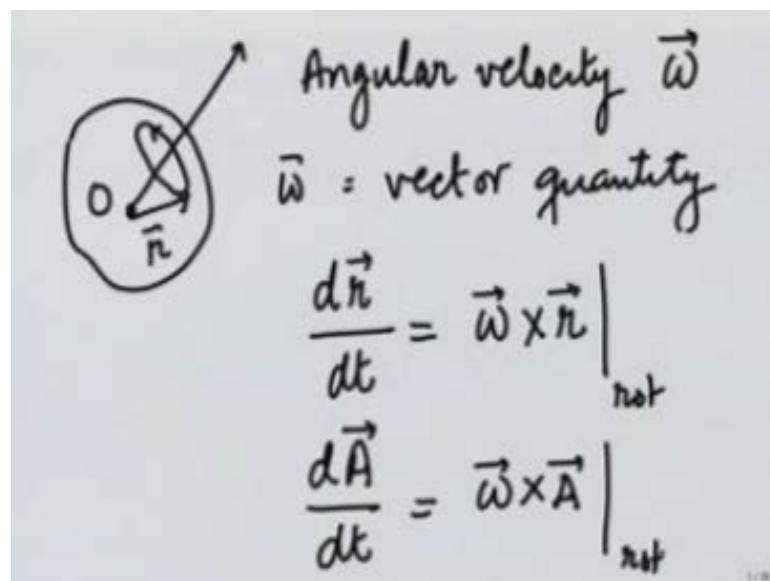 Angular velocity ω⃗
ω⃗ = vector quantity
O
r⃗
dr⃗/dt = ω⃗ × r⃗ |rot
dA⃗/dt = ω⃗ × A⃗ |rot